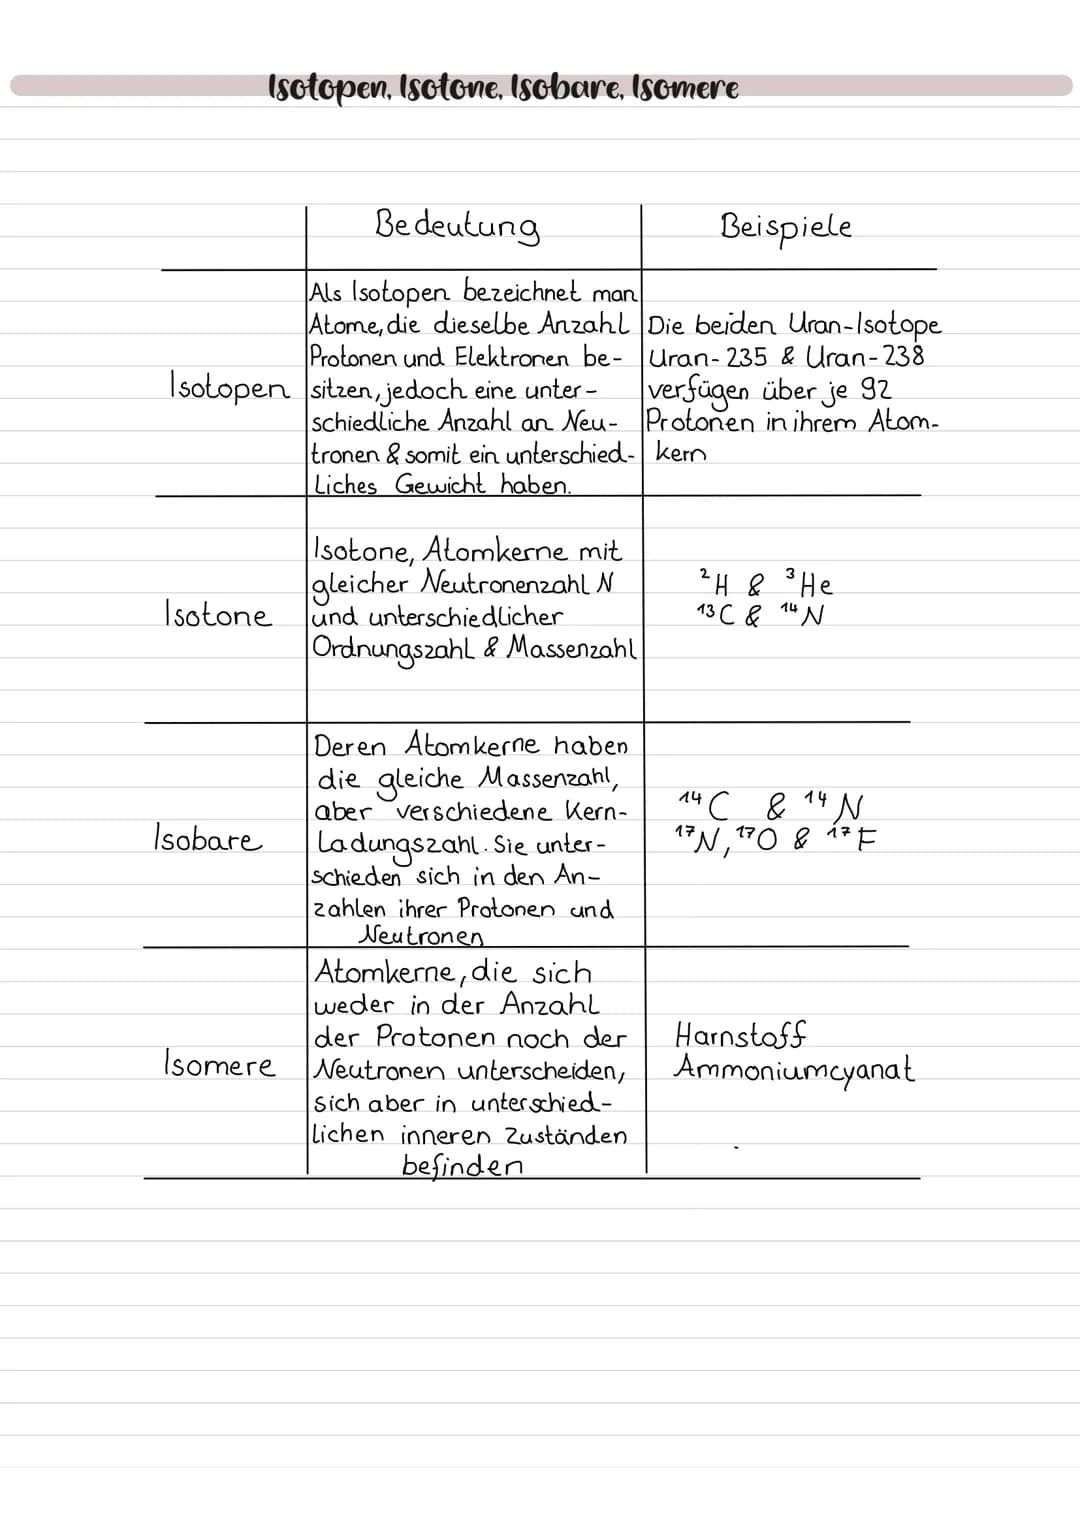 Isotopen, Isotone, Isobare, Isomere
Bedeutung
Beispiele
Isotopen
Als Isotopen bezeichnet man
Atome, die dieselbe Anzahl
Protonen und Elektronen be-
sitzen, jedoch eine unter-
schiedliche Anzahl an Neu-
tronen & somit ein unterschied-
liches Gewicht haben.
Die beiden Uran-Isotope
Uran-235 & Uran-238
verfügen über je 92
Protonen in ihrem Atom-
kern
Isotone
Isotone, Atomkerne mit
gleicher Neutronenzahl N
und unterschiedlicher
Ordnungszahl & Massenzahl
²H & ³He
¹³C & ¹⁴N
Isobare
Deren Atomkerne haben
die gleiche Massenzahl,
aber verschiedene Kern-
Ladungszahl. Sie unter-
schieden sich in den An-
zahlen ihrer Protonen und
Neutronen
¹⁴C & ¹⁴N
¹⁷N, ¹⁷O & ¹⁷F
Isomere
Atomkerne, die sich
weder in der Anzahl
der Protonen noch der
Neutronen unterscheiden,
sich aber in unterschied-
lichen inneren Zuständen
befinden
Harnstoff
Ammoniumcyanat